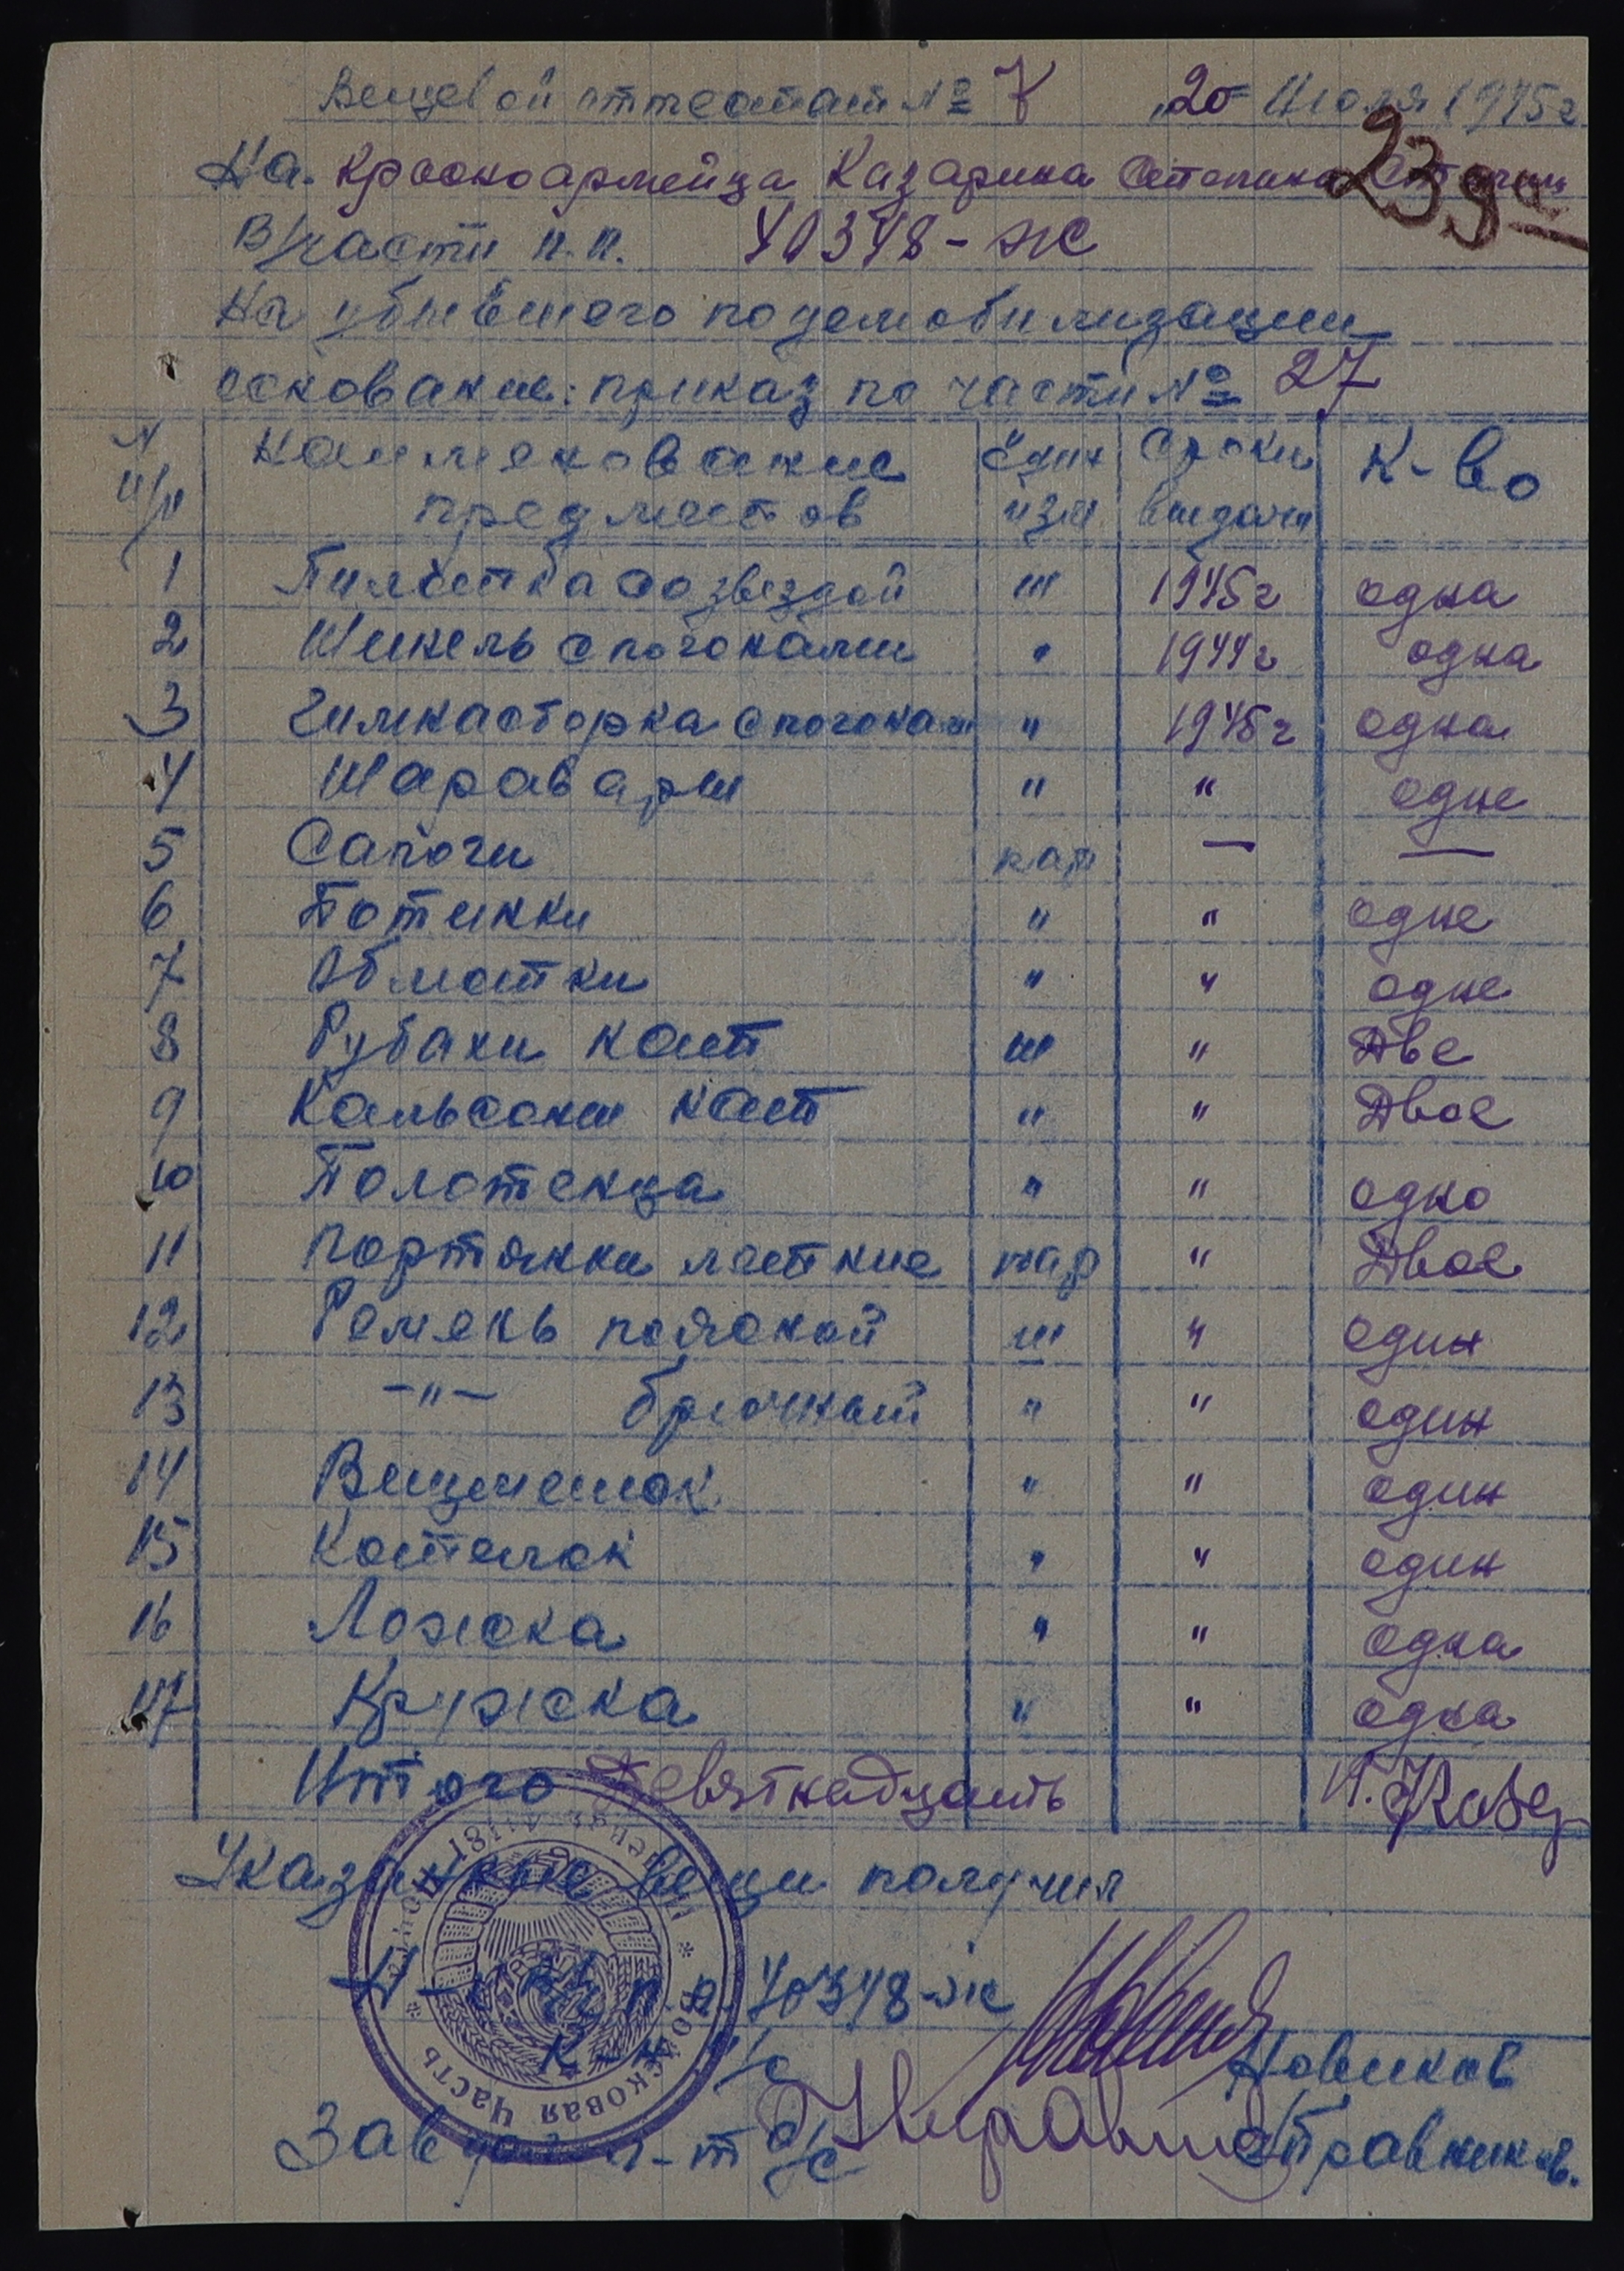 Вещевой аттестат № 7 "20" Июля 1945г
23 да
На красноармейца Казарина Степана
В/части п.п. 40348-ж
На убывшего по демобилизации
основание: приказ по части № 27
№ п/п Наименование предметов Един изм Сроки выдачи К-во
1 Пилотка со звездой ш 1945г одна
2 Шинель с погонами " 1944г одна
3 Гимнасторка с погонам " 1945г одна
4 Шаравары " " одне
5 Сапоги пар — —
6 Ботинки " " одне
7 Обмотки " " одне
8 Рубахи нат ш " Две
9 Кальсоны нат " " Двое
10 Полотенца " " одно
11 Портянки летние пар " Двое
12 Ремень поясной ш " один
13 -"- брючный " " один
14 Вещмешок " " один
15 Котелок " " один
16 Ложка " " одна
17 Кружка " " одна
Итого Девятнадцать
Указанные вещи получил
п.п. 40348-ж
к-н и/с Новиков
Зав л-т а/с Правников.
Войсковая часть